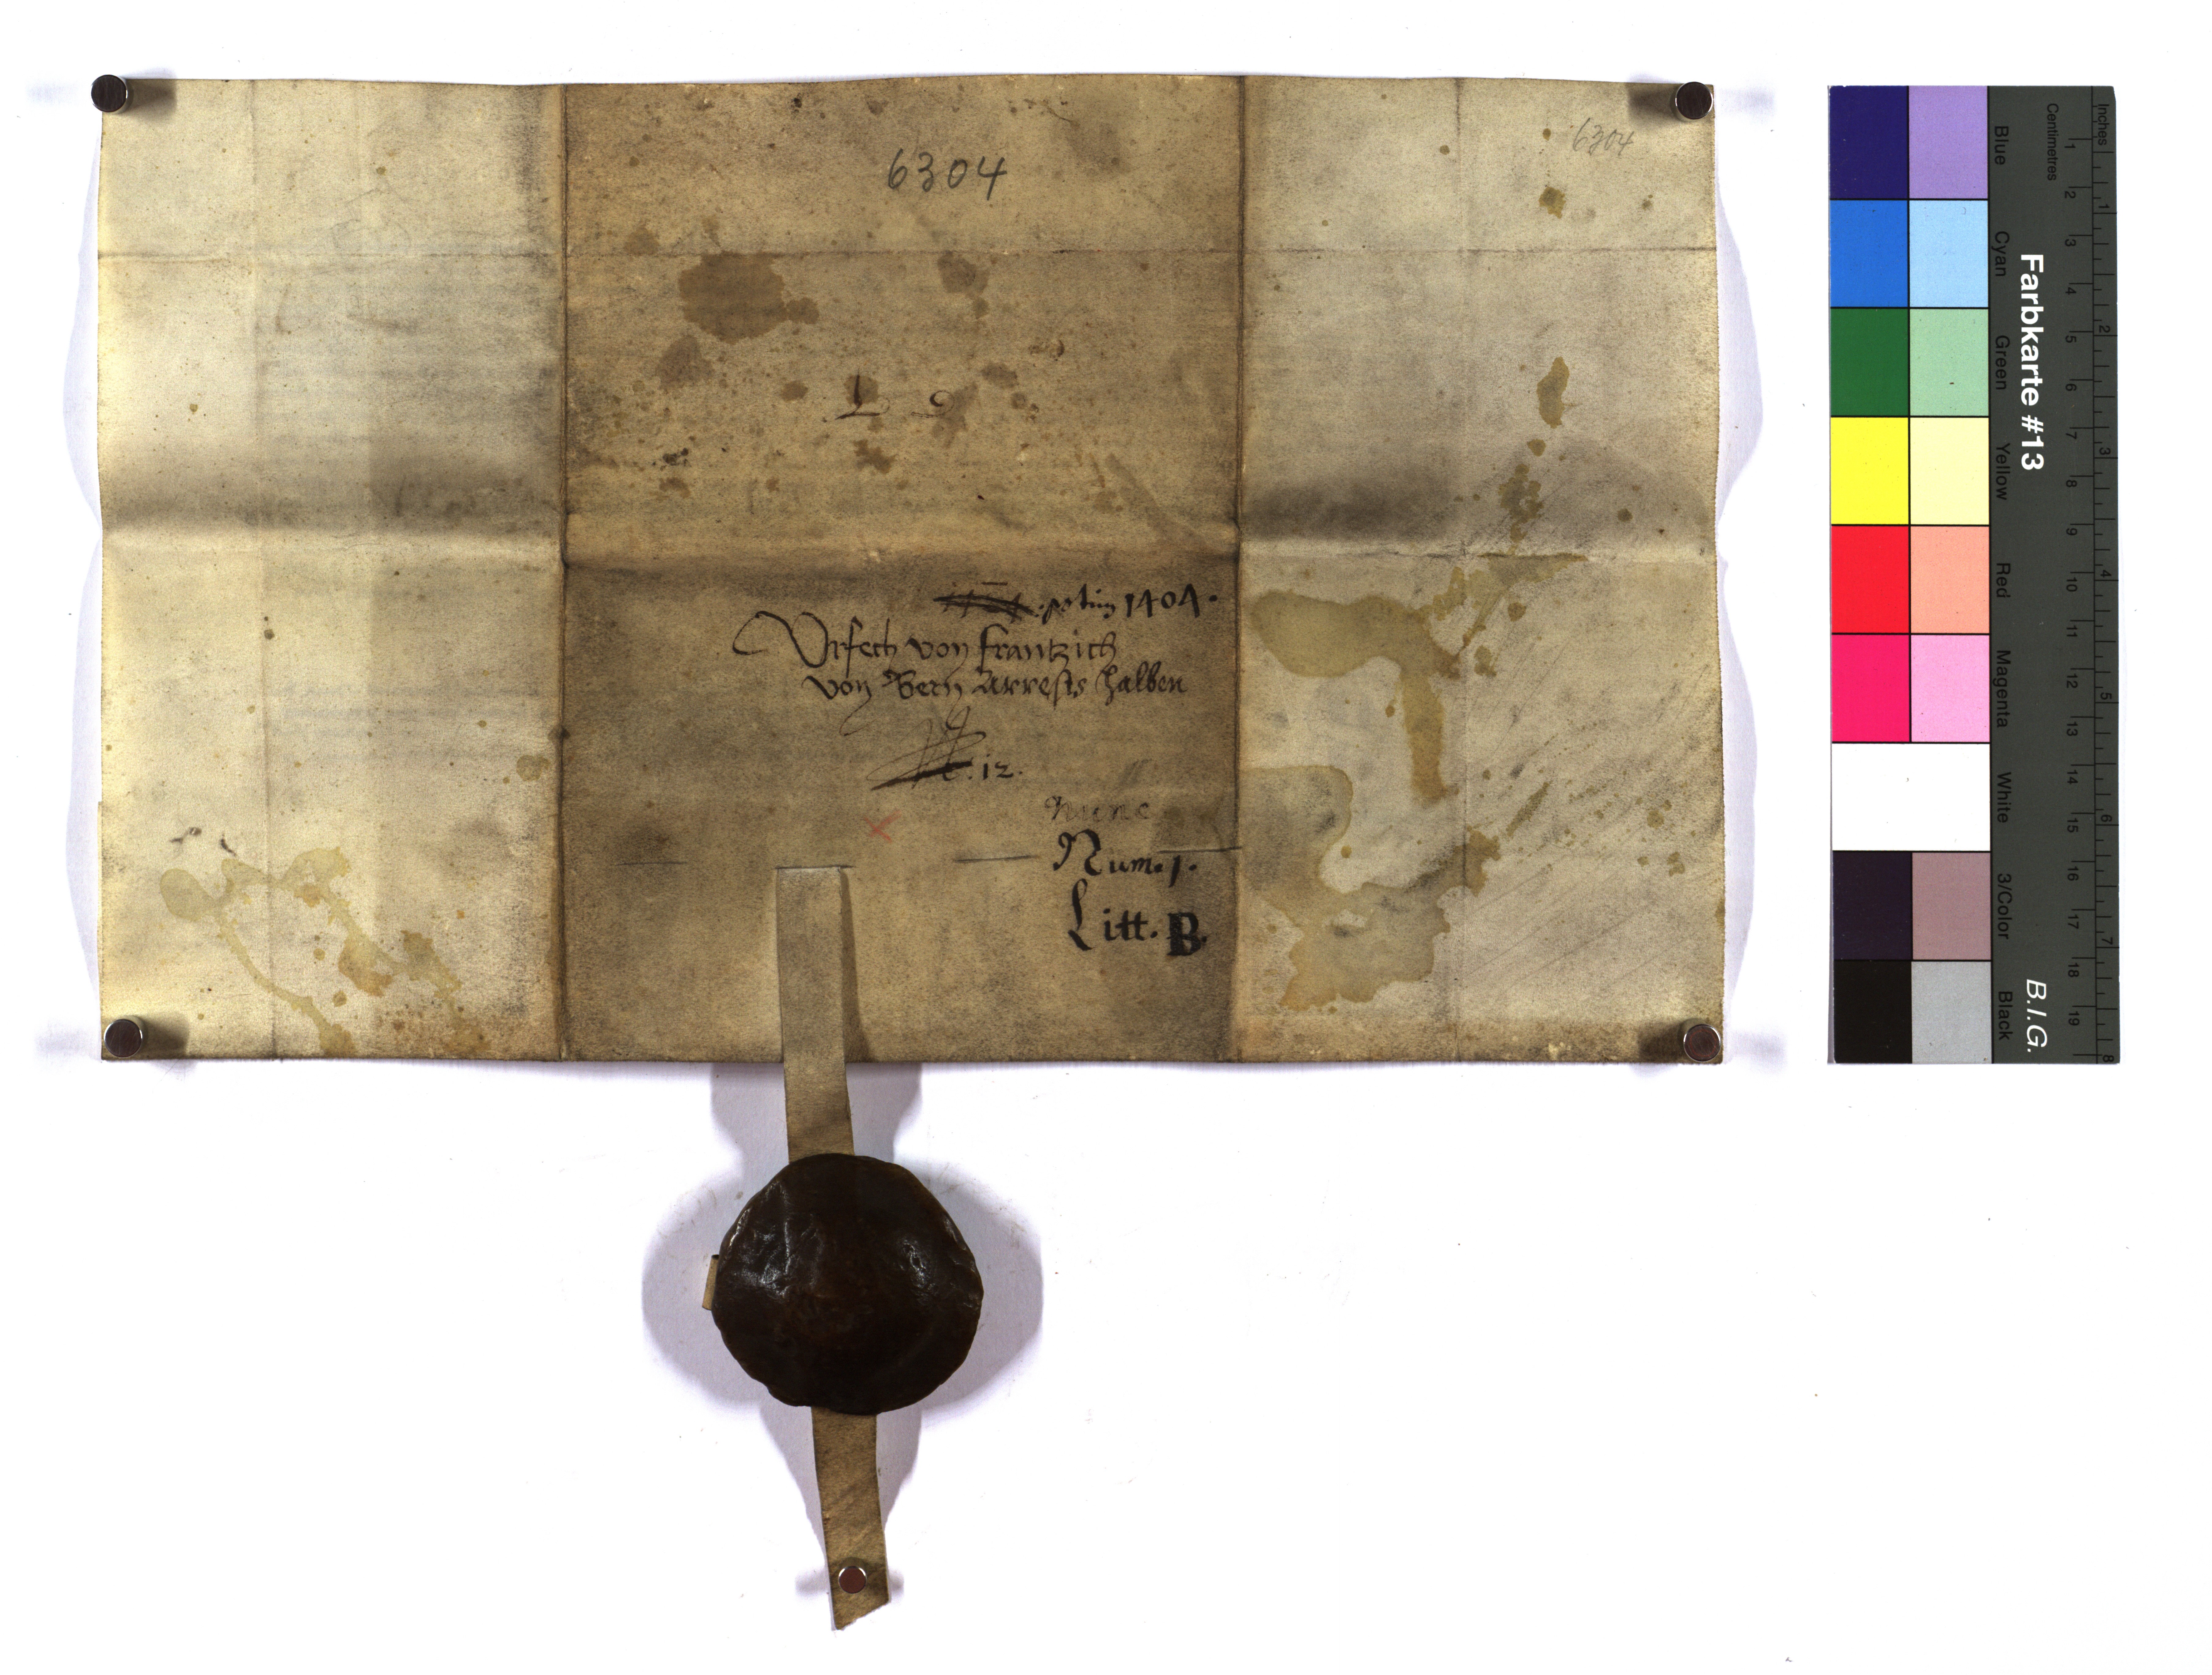 6304
6304
L 9
1404.
Vrfech von Frantzich
von Bern Arrests halben
12.
Nunc
Num. 1.
Litt. B.
Farbkarte #13
B.I.G.
Blue
Cyan
Green
Yellow
Red
Magenta
White
3/Color
Black
Centimetres
1 2 3 4 5 6 7 8 9 10 11 12 13 14 15 16 17 18 19
Inches
1 2 3 4 5 6 7 8